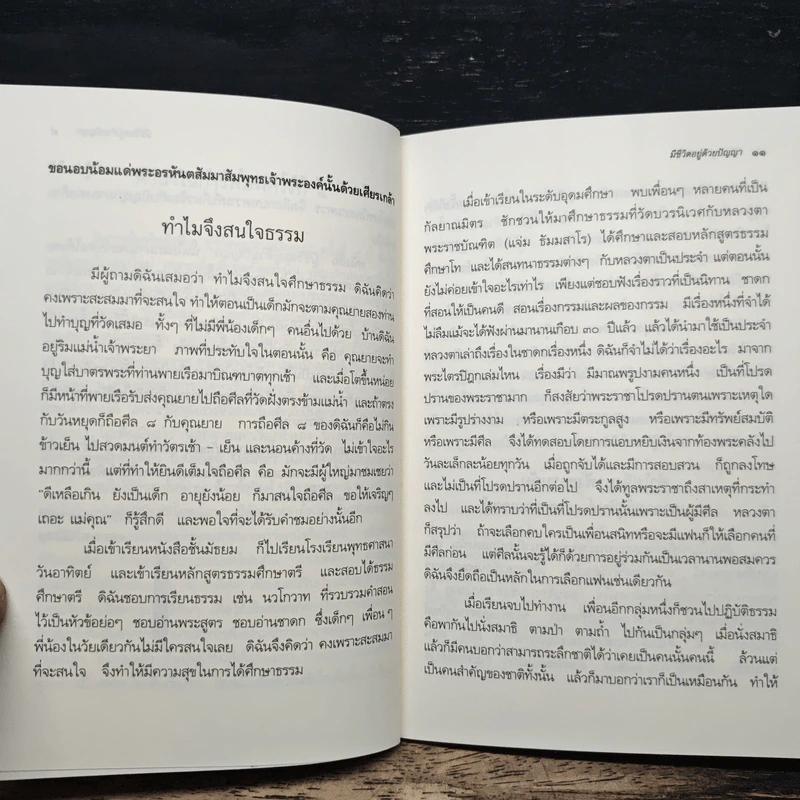 ขอนอบน้อมแด่พระอรหันตสัมมาสัมพุทธเจ้าพระองค์นั้นด้วยเศียรเกล้า
ทำไมจึงสนใจธรรม
มีผู้ถามดิฉันเสมอว่า ทำไมจึงสนใจศึกษาธรรม ดิฉันคิดว่า
คงเพราะสะสมมาที่จะสนใจ ทำให้ตอนเป็นเด็กมักจะตามคุณยายสองท่าน
ไปทำบุญที่วัดเสมอ ทั้งๆ ที่ไม่มีพี่น้องเด็กๆ คนอื่นไปด้วย บ้านดิฉัน
อยู่ริมแม่น้ำเจ้าพระยา ภาพที่ประทับใจในตอนนั้น คือ คุณยายจะทำ
บุญใส่บาตรพระที่ท่านพายเรือมาบิณฑบาตทุกเช้า และเมื่อโตขึ้นหน่อย
ก็มีหน้าที่พายเรือรับส่งคุณยายไปถือศีลที่วัดฝั่งตรงข้ามแม่น้ำ และถ้าตรง
กับวันหยุดก็ถือศีล ๘ กับคุณยาย การถือศีล ๘ ของดิฉันก็คือไม่กิน
ข้าวเย็น ไปสวดมนต์ทำวัตรเช้า - เย็น และนอนค้างที่วัด ไม่เข้าใจอะไร
มากกว่านี้ แต่ที่ทำให้ยินดีเต็มใจถือศีล คือ มักจะมีผู้ใหญ่มาชมเชยว่า
"ดีเหลือเกิน ยังเป็นเด็ก อายุยังน้อย ก็มาสนใจถือศีล ขอให้เจริญๆ
เถอะ แม่คุณ" ก็รู้สึกดี และพอใจที่จะได้รับคำชมอย่างนั้นอีก
เมื่อเข้าเรียนหนังสือชั้นมัธยม ก็ไปเรียนโรงเรียนพุทธศาสนา
วันอาทิตย์ และเข้าเรียนหลักสูตรธรรมศึกษาตรี และสอบได้ธรรม
ศึกษาตรี ดิฉันชอบการเรียนธรรม เช่น นวโกวาท ที่รวบรวมคำสอน
ไว้เป็นหัวข้อย่อๆ ชอบอ่านพระสูตร ชอบอ่านชาดก ซึ่งเด็กๆ เพื่อนๆ
พี่น้องในวัยเดียวกันไม่มีใครสนใจเลย ดิฉันจึงคิดว่า คงเพราะสะสมมา
ที่จะสนใจ จึงทำให้มีความสุขในการได้ศึกษาธรรม
มีชีวิตอยู่ด้วยปัญญา ๑๑
เมื่อเข้าเรียนในระดับอุดมศึกษา พบเพื่อนๆ หลายคนที่เป็น
กัลยาณมิตร ชักชวนให้มาศึกษาธรรมที่วัดบวรนิเวศกับหลวงตา
พระราชบัณฑิต (แจ่ม ธัมมสาโร) ได้ศึกษาและสอบหลักสูตรธรรม
ศึกษาโท และได้สนทนาธรรมต่างๆ กับหลวงตาเป็นประจำ แต่ตอนนั้น
ยังไม่ค่อยเข้าใจอะไรเท่าไร เพียงแต่ชอบฟังเรื่องราวที่เป็นนิทาน ชาดก
ที่สอนให้เป็นคนดี สอนเรื่องกรรมและผลของกรรม มีเรื่องหนึ่งที่จำได้
ไม่ลืมแม้จะได้ฟังผ่านมานานเกือบ ๓๐ ปีแล้ว แล้วได้นำมาใช้เป็นประจำ
หลวงตาเล่าถึงเรื่องในชาดกเรื่องหนึ่ง ดิฉันก็จำไม่ได้ว่าเรื่องอะไร มาจาก
พระไตรปิฎกเล่มไหน เรื่องมีว่า มีมาณพรูปงามคนหนึ่ง เป็นที่โปรด
ปรานของพระราชามาก ก็สงสัยว่าพระราชาโปรดปรานตนเพราะเหตุใด
เพราะมีรูปร่างงาม หรือเพราะมีตระกูลสูง หรือเพราะมีทรัพย์สมบัติ
หรือเพราะมีศีล จึงได้ทดสอบโดยการแอบหยิบเงินจากท้องพระคลังไป
วันละเล็กละน้อยทุกวัน เมื่อถูกจับได้และมีการสอบสวน ก็ถูกลงโทษ
และไม่เป็นที่โปรดปรานอีกต่อไป จึงได้ทูลพระราชาถึงสาเหตุที่กระทำ
ลงไป และได้ทราบว่าที่เป็นที่โปรดปรานนั้นเพราะเป็นผู้มีศีล หลวงตา
ก็สรุปว่า ถ้าจะเลือกคบใครเป็นเพื่อนสนิทหรือจะมีแฟนก็ให้เลือกคนที่
มีศีลก่อน แต่ศีลนั้นจะรู้ได้ก็ด้วยการอยู่ร่วมกันเป็นเวลานานพอสมควร
ดิฉันจึงยึดถือเป็นหลักในการเลือกแฟนเช่นเดียวกัน
เมื่อเรียนจบไปทำงาน เพื่อนอีกกลุ่มหนึ่งก็ชวนไปปฏิบัติธรรม
คือพากันไปนั่งสมาธิ ตามป่า ตามถ้ำ ไปกันเป็นกลุ่มๆ เมื่อนั่งสมาธิ
แล้วก็มีคนบอกว่าสามารถระลึกชาติได้ว่าเคยเป็นคนนั้นคนนี้ ล้วนแต่
เป็นคนสำคัญของชาติทั้งนั้น แล้วก็มาบอกว่าเราก็เป็นเหมือนกัน ทำให้